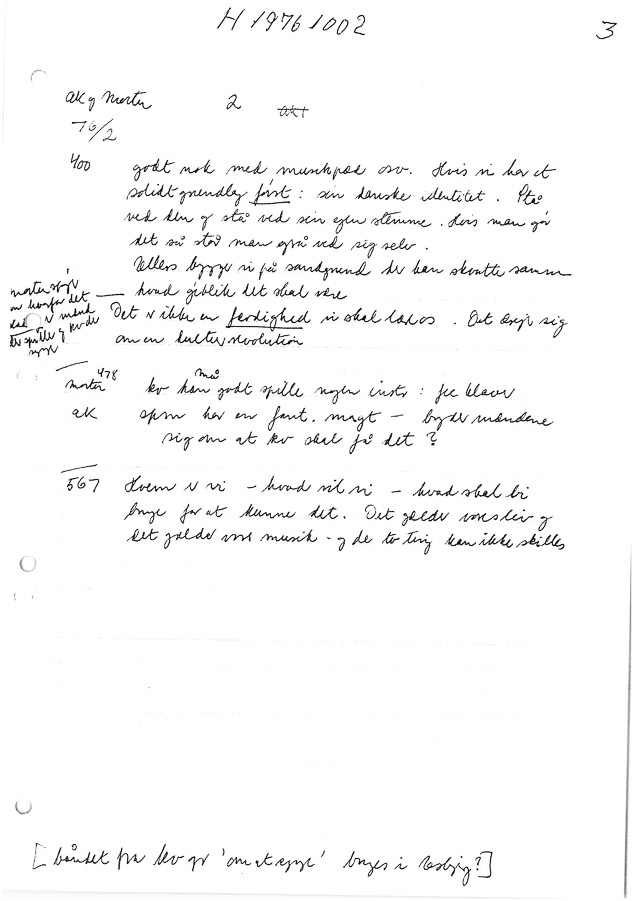 H 1976 1002
3
AK og Morten 2 akt
76/2
400 godt nok med musikpæd osv. Hvis vi har et
solidt grundlag først : sin danske identitet. Stå
ved den og stå ved sin egen stemme. Hvis man gør
det så står man også ved sig selv.
Ellers bygger vi på sandgrund der kan skvatte sammen
hvad øjeblik det skal være
morten
hvorfor det
mænd
der spiller og kv der
synger
Det er ikke en færdighed vi skal lære os. Det drejer sig
om en kulturrevolution
morten 478 kv kan må godt spille nogen instr : fx klaver
AK spm har en fant. magt — bryder mændene
sig om at kv skal få det ?
567 Hvem er vi — hvad vil vi — hvad skal vi
bruge for at kunne det. Det gælder vores liv og
det gælder vores musik - og de to ting kan ikke skilles
[båndet fra kv gr 'om at synge' bruges i ?]